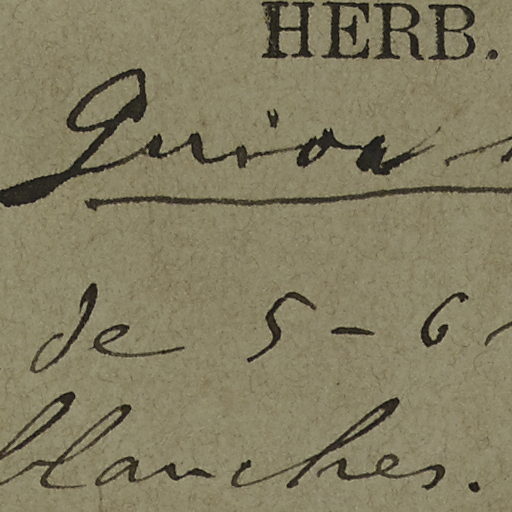 HERB.
Guioa
de 5-6
blanches.